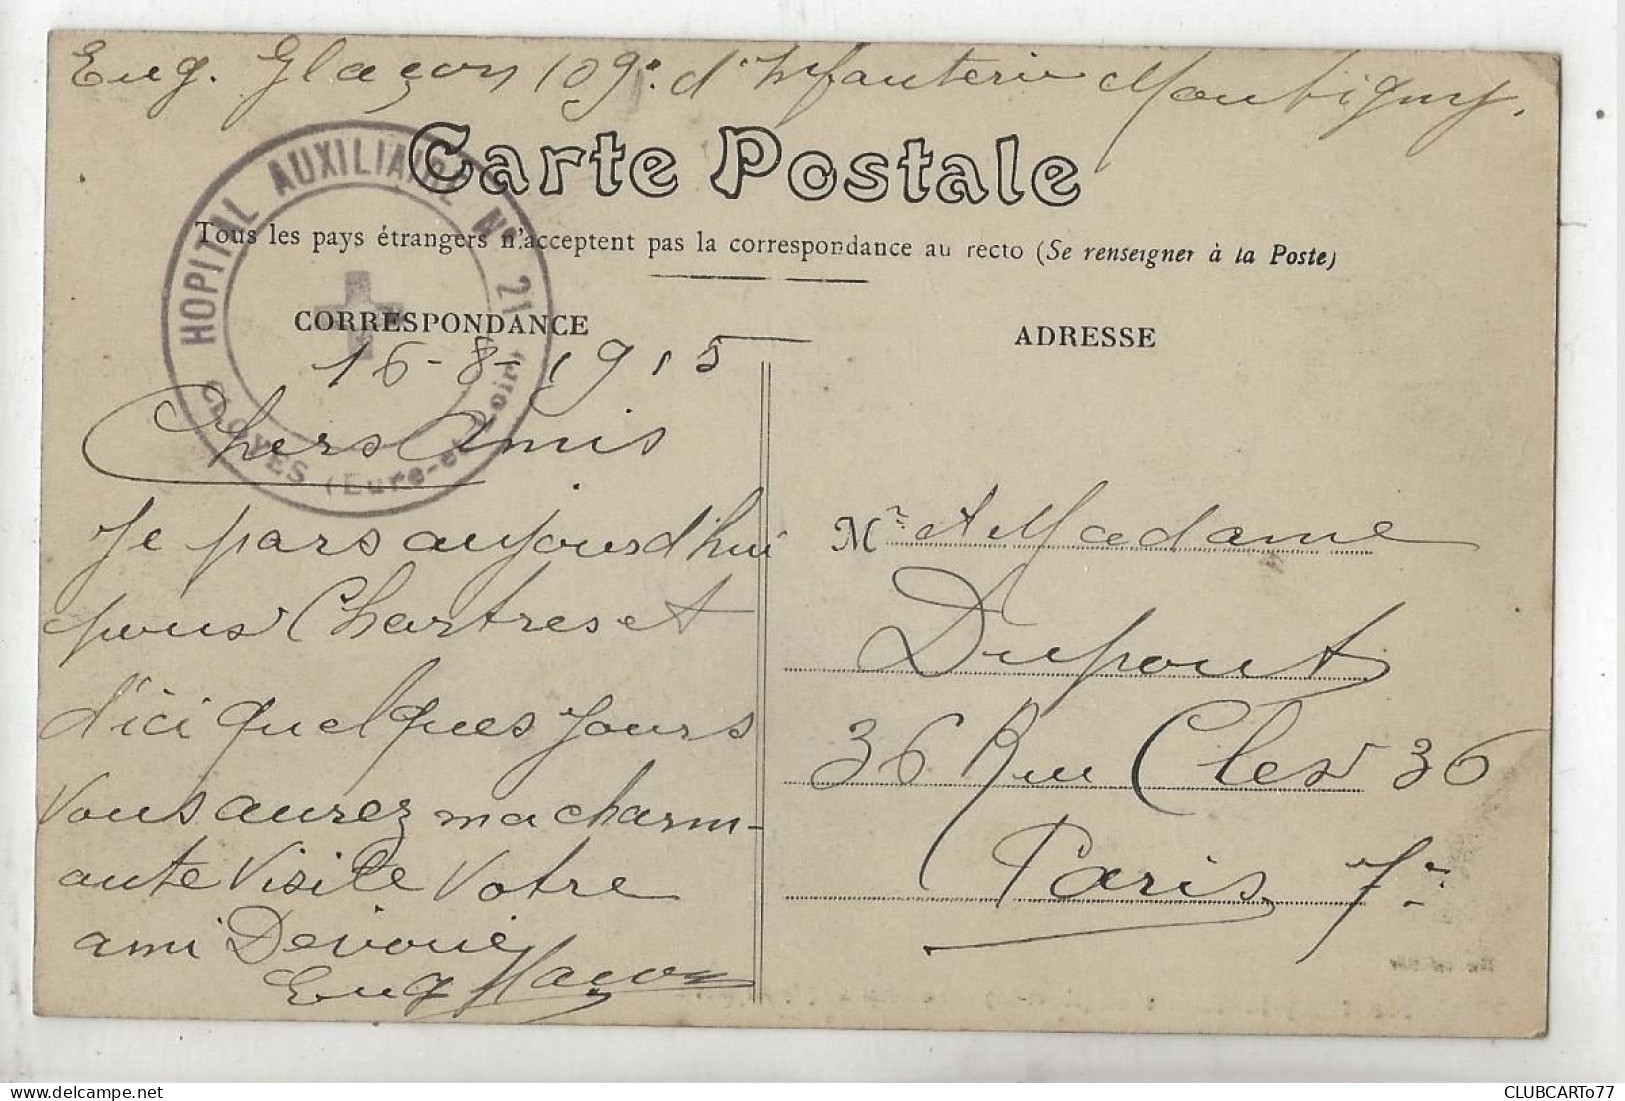 Eug. Glaçon 109e. d'Infanterie Montigny.
Carte Postale
Tous les pays étrangers n'acceptent pas la correspondance au recto (Se renseigner à la Poste)
HOPITAL AUXILIAIRE No 21
CLOYES (Eure-et-Loir)
CORRESPONDANCE
16-8-1915
Chers Amis
Je pars aujourd'hui
pour Chartres et
d'ici quelques Jours
Vous aurez ma charm-
ante Visite Votre
ami Devoué
Eug Glaçon
ADRESSE
Mr et Madame
Dupont
36 Rue Cler 36
Paris 7e
CLUBCARTo77